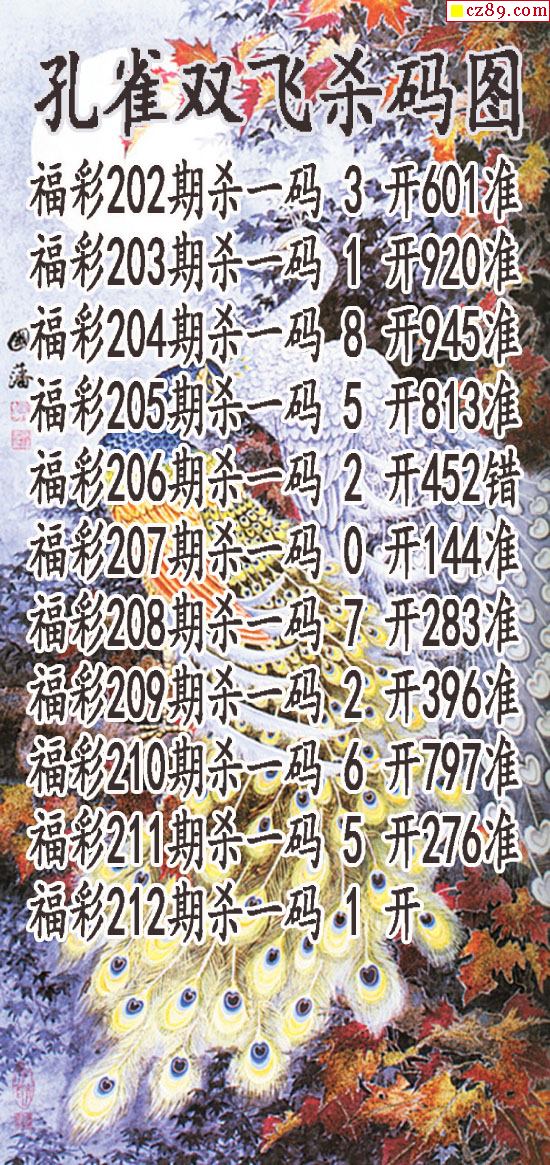 cz89.com
孔雀双飞杀码图
福彩202期杀一码 3 开601准
福彩203期杀一码 1 开920准
福彩204期杀一码 8 开945准
福彩205期杀一码 5 开813准
福彩206期杀一码 2 开452错
福彩207期杀一码 0 开144准
福彩208期杀一码 7 开283准
福彩209期杀一码 2 开396准
福彩210期杀一码 6 开797准
福彩211期杀一码 5 开276准
福彩212期杀一码 1 开
國藩